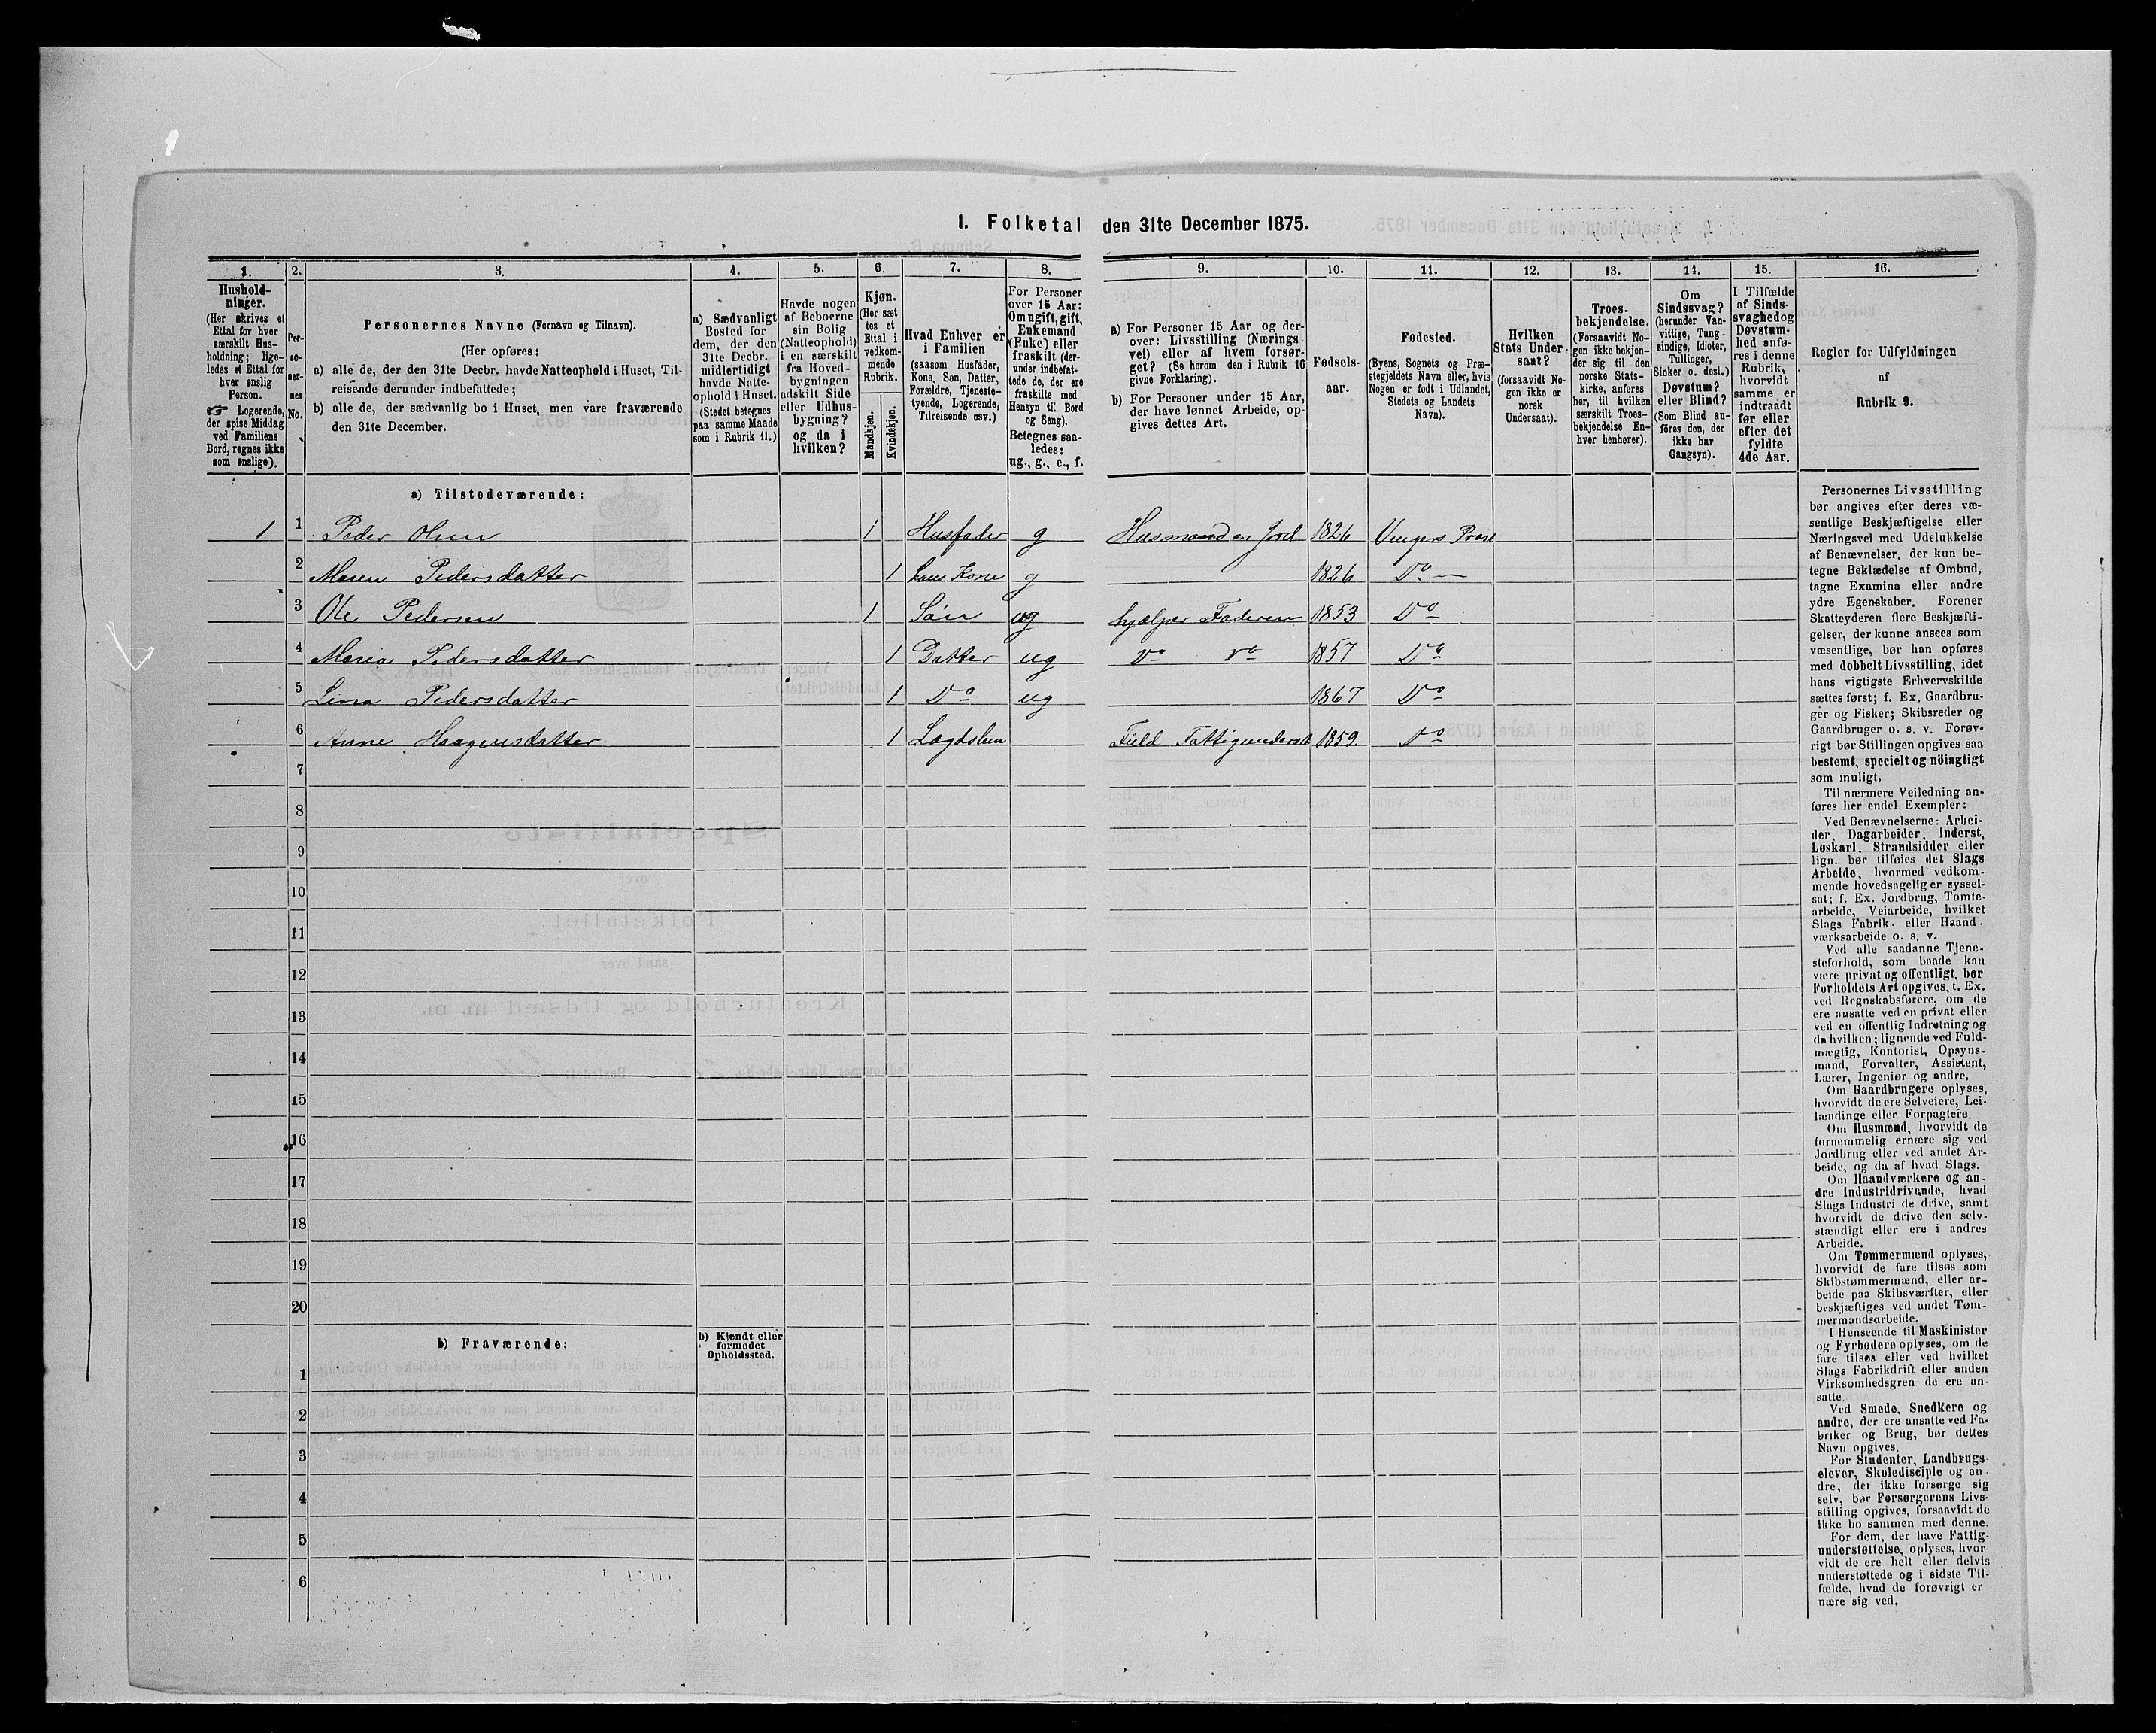 1. Folketal den 31te December 1875.
1. 2. 3. 4. 5. 6. 7. 8. 9. 10. 11. 12. 13. 14. 15. 16.
Hushold-
ninger.
(Her skrives et
Ettal for hver
særskilt Hus-
holdning; lige-
ledes et Ettal for
hver enslig
Person.
☞ Logerende,
der spise Middag
ved Familiens
Bord, regnes ikke
som enslige).
Per-
so-
ner-
nes
No.
Personernes Navne (Fornavn og Tilnavn).
(Her opføres:
a) alle de, der den 31te Decbr. havde Natteophold i Huset, Til-
reisende derunder indbefattede;
b) alle de, der sædvanlig bo i Huset, men vare fraværende
den 31te December.
a) Sædvanligt
Bosted for
dem, der den
31te Decbr.
midlertidigt
havde Natte-
ophold i Huset.
(Stedet betegnes
paa samme Maade
som i Rubrik 11.)
Havde nogen
af Beboerne
sin Bolig
(Natteophold)
i en særskilt
fra Hoved-
bygningen
adskilt Side
eller Udhus-
bygning?
og da i
hvilken?
Kjøn.
(Her sæt
tes et
Ettal i
vedkom-
mende
Rubrik.
Mandkjøn.
Kvindekjøn.
Hvad Enhver er
i Familien
(saasom Husfader,
Kone, Søn, Datter,
Forældre, Tjeneste-
tyende, Logerende,
Tilreisende osv.)
For Personer
over 15 Aar:
Om ugift, gift,
Enkemand
(Enke) eller
fraskilt (der-
under indbefat-
tede de, der ere
fraskilte med
Hensyn til Bord
og Seng).
Betegnes saa-
ledes:
ug., g., e., f.
a) For Personer 15 Aar og der-
over: Livsstilling (Nærings
vei) eller af hvem forsør-
get? (Se herom den i Rubrik 16
givne Forklaring).
b) For Personer under 15 Aar,
der have lønnet Arbeide, op-
gives dettes Art.
Fødsels-
aar.
Fødested.
(Byens, Sognets og Præ-
stegjeldets Navn eller, hvis
Nogen er født i Udlandet,
Stedets og Landets
Navn).
Hvilken
Stats Under-
saat?
(forsaavidt No-
gen ikke er
norsk
Undersaat).
Troes-
bekjendelse.
(Forsaavidt No-
gen ikke bekjen-
der sig til den
norske Stats-
kirke, anføres
her, til hvilken
særskilt Troes-
bekjendelse En-
hver henhører).
Om
Sindssvag?
(herunder Van-
vittige, Tung-
sindige, Idioter,
Tullinger,
Sinker o. desl.)
Døvstum?
eller Blind?
(Som Blind an-
føres den, der
ikke har
Gangsyn).
I Tilfælde
af Sinds-
svaghed og
Døvstum-
hed anfø-
res i denne
Rubrik,
hvorvidt
samme er
indtraadt
før eller
efter det
fyldte
4de Aar.
Regler for Udfyldningen
af
Rubrik 9.
a) Tilstedeværende:
1 1 Peder Olsen 1 Husfader g Husmand en Jord 1826 Vingers Præst
2 Maren Pedersdatter 1 hans Kone g 1826 Do —
3 Ole Pedersen 1 Søn ug hjælper Faderen 1853 Do
4 Maria Pedersdatter 1 Datter ug Do Do 1857 Do
5 Lina Pedersdatter 1 Do ug 1867 Do
6 Anne Haagensdatter 1 Lægdslem Fuld Fattigunderst 1859. Do
7
8
9
10
11
12
13
14
15
16
17
18
19
20
b) Fraværende:
b) Kjendt eller
formodet
Opholdssted.
1
2
3
4
5
6
Personernes Livsstilling
bør angives efter deres væ-
sentlige Beskjæftigelse eller
Næringsvei med Udelukkelse
af Benævnelser, der kun be-
tegne Beklædelse af Ombud,
tagne Examina eller andre
ydre Egenskaber. Forener
Skatteyderen flere Beskjæfti-
gelser, der kunne ansees som
væsentlige, bør han opføres
med dobbelt Livsstilling, idet
hans vigtigste Erhvervskilde
sættes først; f. Ex. Gaardbru-
ger og Fisker; Skibsreder og
Gaardbruger o. s. v. Forøv-
rigt bør Stillingen opgives saa
bestemt, specielt og nöiagtigt
som muligt.
Til nærmere Veiledning an-
føres her endel Exempler:
Ved Benævnelserne: Arbei-
der, Dagarbeider, Inderst,
Løskarl, Strandsidder eller
lign. bør tilføies det Slags
Arbeide, hvormed vedkom-
mende hovedsagelig er syssel-
sat; f. Ex. Jordbrug, Tomte-
arbeide, Veiarbeide, hvilket
Slags Fabrik- eller Haand-
værksarbeide o. s. v.
Ved alle saadanne Tjene-
steforhold, som baade kan
være privat og offentligt, bør
Forholdets Art opgives, t. Ex.
ved Regnskabsførere, om de
ere ansatte ved en privat eller
ved en offentlig Indretning og
da hvilken; lignende ved Fuld-
mægtig, Kontorist, Opsyns-
mand, Forvalter, Assistent,
Lærer, Ingeniør og andre.
Om Gaardbrugere oplyses,
hvorvidt de ere Selveiere, Lei-
lændinge eller Forpagtere.
Om Husmænd, hvorvidt de
fornemmelig ernære sig ved
Jordbrug eller ved andet Ar-
beide, og da af hvad Slags.
Om Haandværkere og an-
dre Industridrivende, hvad
Slags Industri de drive, samt
hvorvidt de drive den selv-
stændigt eller ere i andres
Arbeide.
Om Tømmermænd oplyses,
hvorvidt de fare tilsøs som
Skibstømmermænd, eller ar-
beide paa Skibsværfter, eller
beskjæftiges ved andet Tøm-
mermandsarbeide.
I Henseende til Maskinister
og Fyrbødere oplyses, om de
fare tilsøs eller ved hvilket
Slags Fabrikdrift eller anden
Virksomhedsgren de ere an-
satte.
Ved Smede, Snedkere og
andre, der ere ansatte ved Fa-
briker og Brug, bør dettes
Navn opgives.
For Studenter, Landbrugs-
elever, Skoledisciple og an-
dre, der ikke forsørge sig
selv, bør Forsørgerens Livs-
stilling opgives, forsaavidt de
ikke bo sammen med denne.
For dem, der have Fattig-
understøttelse, oplyses, hvor-
vidt de ere helt eller delvis
understøttede og i sidste Til-
fælde, hvad de forøvrigt er
nære sig ved.